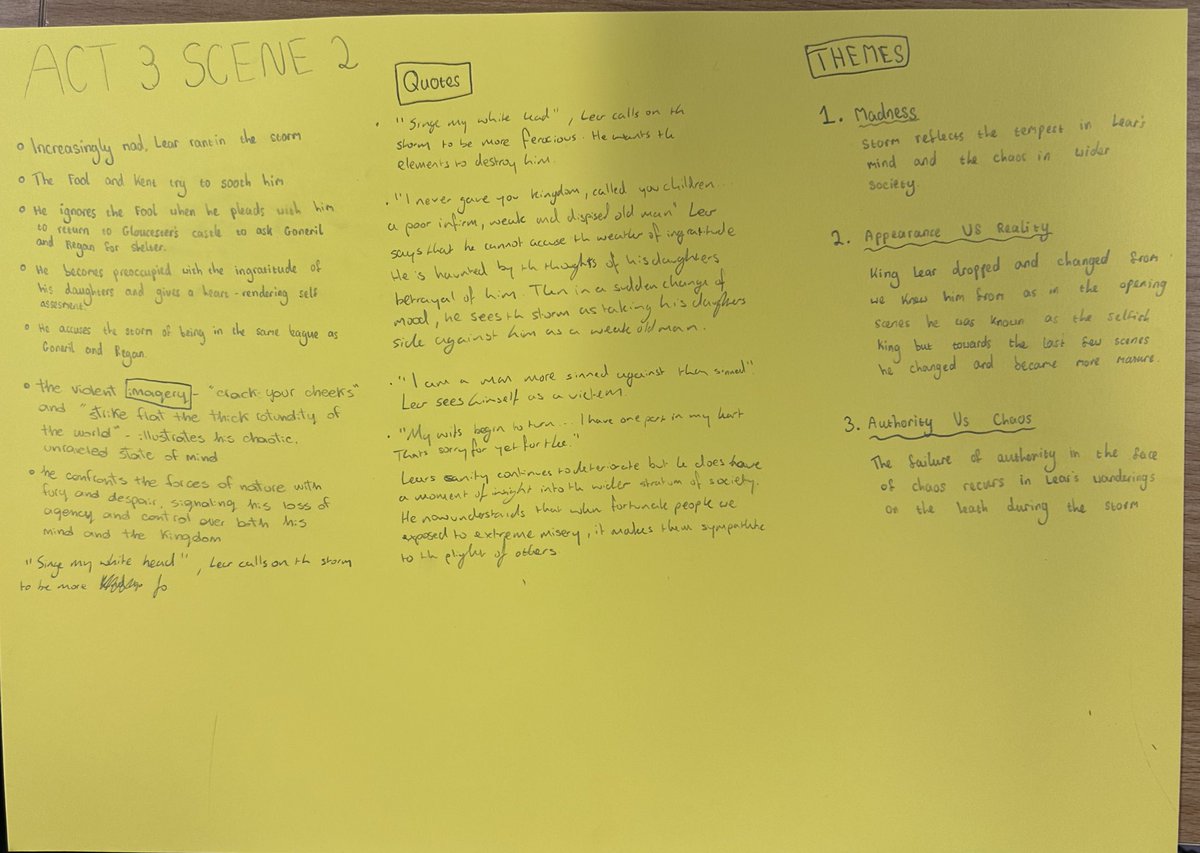 ACT 3 SCENE 2
o Increasingly mad, Lear rant in the storm
o The Fool and Kent try to sooth him
o He ignores the Fool when he pleads with him
to return to Gloucester's castle to ask Goneril
and Regan for shelter.
o He becomes preoccupied with the ingratitude of
his daughters and gives a heart-rendering self
assesment
o He accuses the storm of being in the same league as
Goneril and Regan.
o the violent imagery - "crack your cheeks"
and "strike flat the thick rotundity of
the world" - illustrates his chaotic,
unraveled state of mind
o he confronts the forces of nature with
fury and despair, signaling his loss of
agency and control over both his
mind and the Kingdom
"Singe my white head", Lear calls on th storm
to be more fo
Quotes
. "Singe my white head", Lear calls on th
storm to be more feracious. He wants the
elements to destroy him.
. "I never gave you kingdom, called you children...
a poor infirm, weak and dispised old man" Lear
says that he cannot accuse th weather of ingratitude
He is haunted by th thoughts of his daughters
betrayal of him. Then in a sudden change of
mood, he sees th storm as taking his daughters
side against him as a weak old man.
. "I am a man more sinned against then sinned"
Lear sees himself as a victem.
. "My wits begin to turn... I have one part in my hart
Thats sorry for yet for thee."
Lears sanity continues to deteriorate but he does have
a moment of insight into th wider stratum of society.
He now understands that when fortunate people we
exposed to extreme misery, it makes them sympathtic
to th plight of others
THEMES
1. Madness
Storm reflects the tempest in Lear's
mind and the chaos in wider
society.
2. Appearance VS Reality
King Lear dropped and changed from
we knew him from as in the opening
scenes he was known as the selfish
King but towards the last few scenes
he changed and became more mature.
3. Authority Vs Chaos
The failure of authority in the face
of chaos recurs in Lear's wanderings
on the heath during the storm